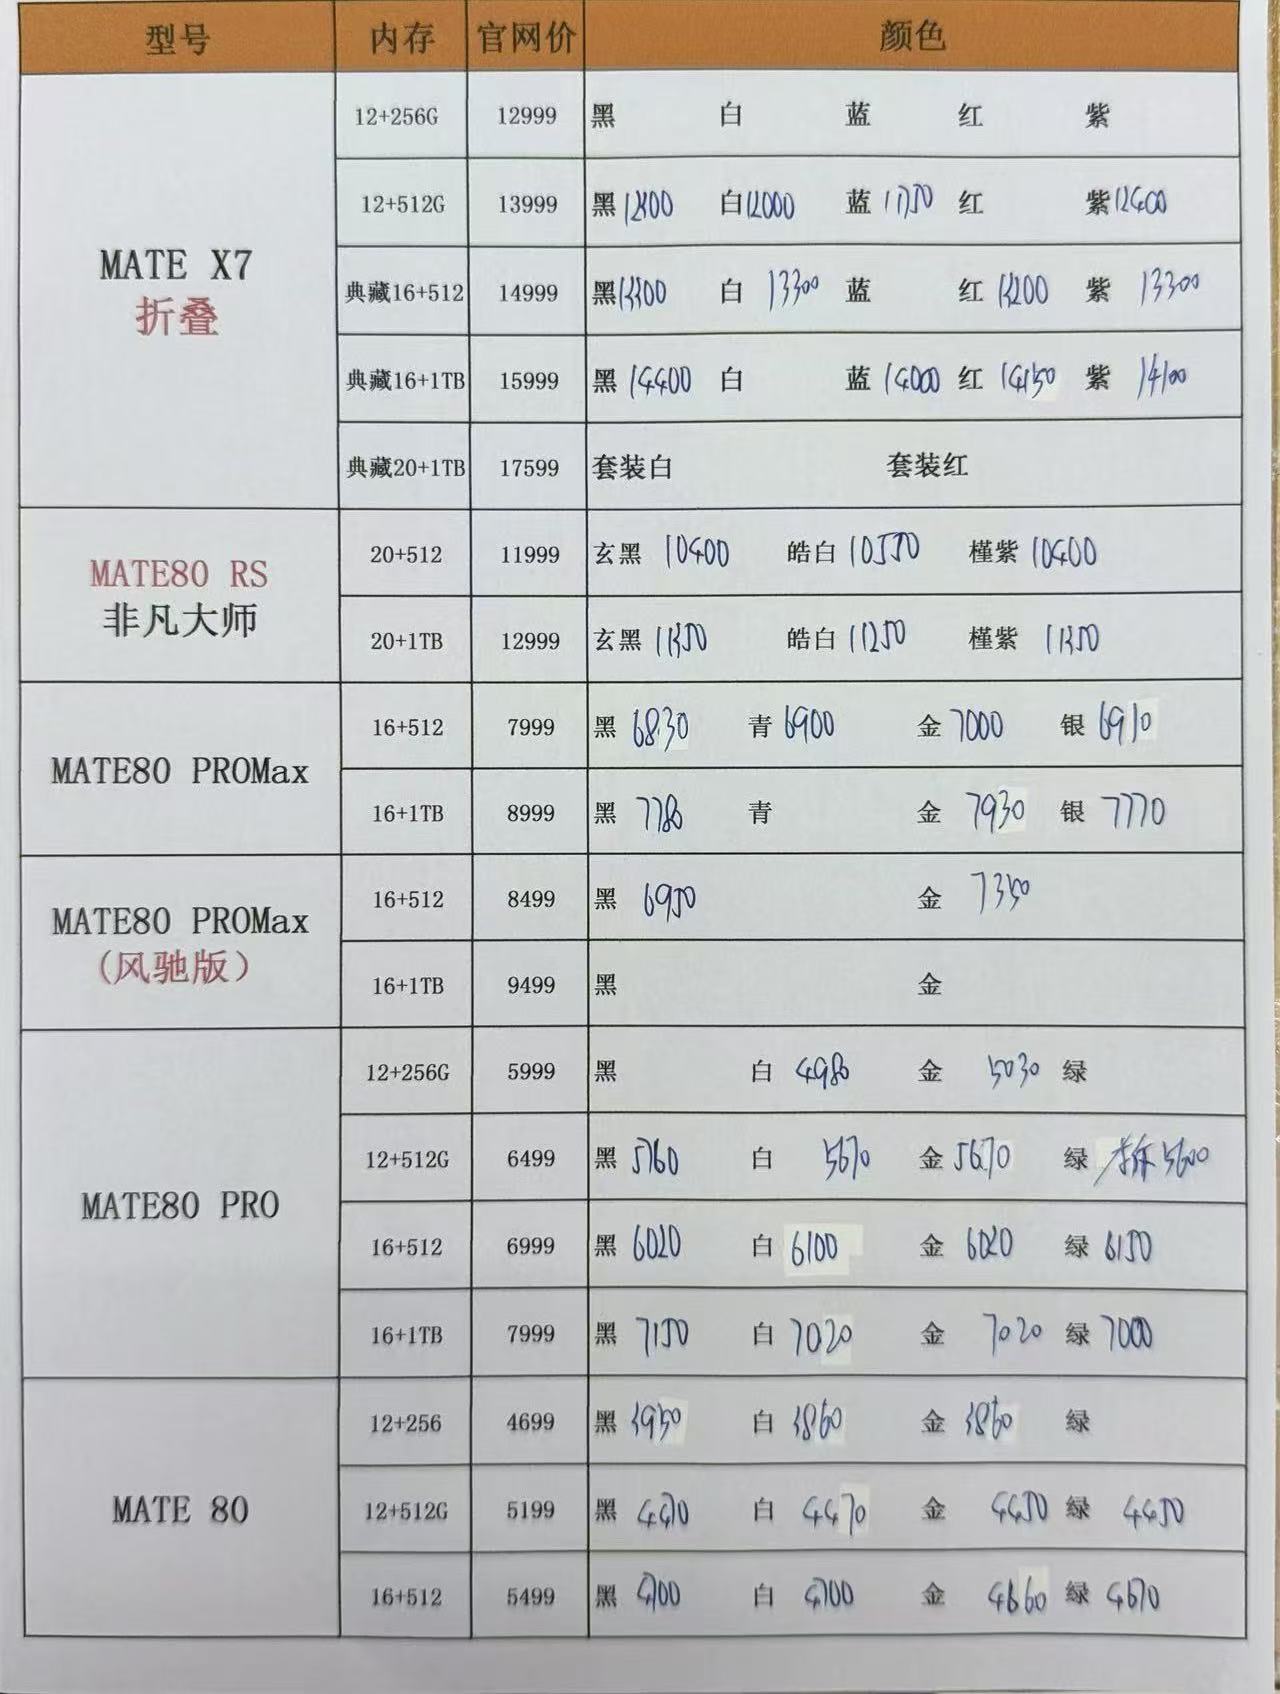 型号 内存 官网价 颜色
MATE X7
折叠
12+256G 12999 黑 白 蓝 红 紫
12+512G 13999 黑 白12000 蓝 11750 红 紫12400
典藏16+512 14999 黑13300 白 13300 蓝 红 13200 紫 13300
典藏16+1TB 15999 黑 14400 白 蓝 14000 红 14150 紫 14100
典藏20+1TB 17599 套装白 套装红
MATE80 RS
非凡大师
20+512 11999 玄黑 10400 皓白 10550 槿紫 10400
20+1TB 12999 玄黑 11350 皓白 11250 槿紫 11350
MATE80 PROMax
16+512 7999 黑 6830 青 6900 金 7000 银 6910
16+1TB 8999 黑 7780 青 金 7930 银 7770
MATE80 PROMax
(风驰版)
16+512 8499 黑 6950 金 7350
16+1TB 9499 黑 金
MATE80 PRO
12+256G 5999 黑 白 4980 金 5030 绿
12+512G 6499 黑 5760 白 5670 金 5670 绿 拆 5600
16+512 6999 黑 6020 白 6100 金 6020 绿 6150
16+1TB 7999 黑 7150 白 7020 金 7020 绿 7000
MATE 80
12+256 4699 黑 3950 白 3860 金 3860 绿
12+512G 5199 黑 4470 白 4470 金 4450 绿 4450
16+512 5499 黑 4700 白 4700 金 4660 绿 4670